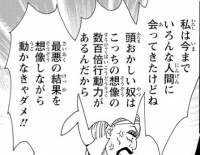 私は今まで
いろんな人間に
会ってきたけどね
頭おかしい奴は
こっちの想像の
数百倍行動力が
あるんだから
最悪の結果を
想像しながら
動かなきゃダメ!!